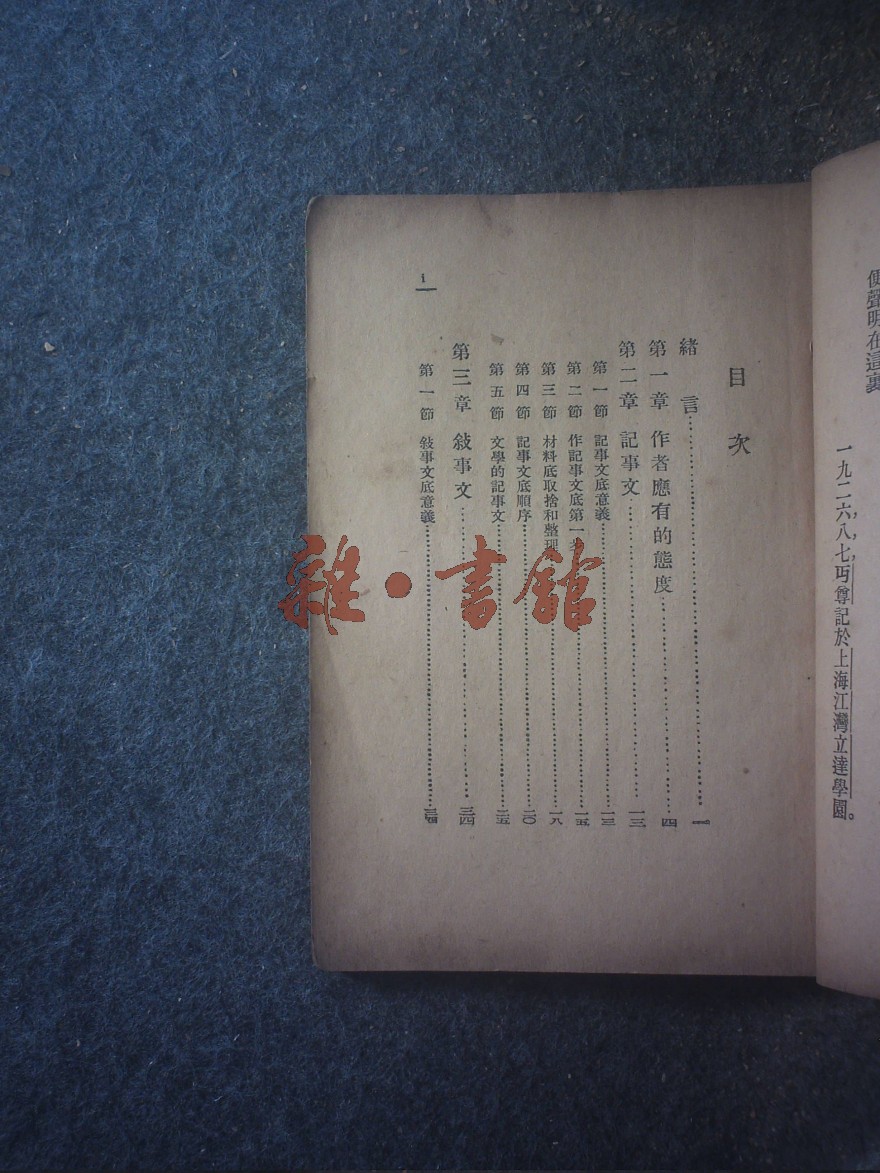 便聲明在這裏
一九二六，八，七，丏尊記於上海江灣立達學園。
目次
緒言……一
第一章 作者應有的態度……四
第二章 記事文……一三
第一節 記事文底意義……一三
第二節 作記事文底第一……一五
第三節 材料底取捨和整理……一八
第四節 記事文底順序……二〇
第五節 文學的記事文……二五
第三章 敍事文……三四
第一節 敍事文底意義……三四
i
雜·書館